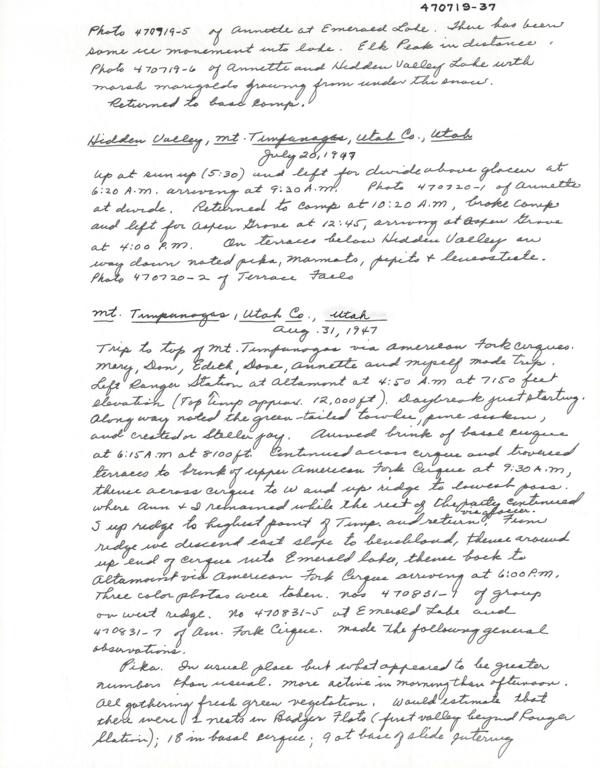 470719-37
Photo 470719-5 of Annette at Emerald Lake. There has been
some ice movement into lake. Elk Peak in distance.
Photo 470719-6 of Annette and Hidden Valley Lake with
marsh marigolds growing from under the snow.
Returned to base camp.
Hidden Valley, Mt. Timpanogas, Utah Co., Utah
July 20, 1947
Up at sun up (5:30) and left for divide above glacier at
6:20 A.M. arriving at 9:30 A.M. Photo 470720-1 of Annette
at divide. Returned to camp at 10:20 A.M., broke camp
and left for Aspen Grove at 12:45, arriving at Aspen Grove
at 4:00 P.M. On terraces below Hidden Valley on
way down noted pika, marmots, pipits + leucosticte.
Photo 470720-2 of Terrace Falls
Mt. Timpanogas, Utah Co., Utah
Aug. 31, 1947
Trip to top of Mt. Timpanogas via American Fork Cirques.
Mary, Don, Edith, Dove, Annette and myself made trip.
Left Ranger Station at Altamont at 4:50 A.M at 7150 feet
elevation (Top Timp approx. 12,000 ft). Daybreak just starting.
Along way noted the green-tailed towhee, pine siskin,
and crested or Steller jay. Arrived brink of basal cirque
at 6:15 A.M at 8100 ft. Continued across cirque and traversed
terraces to brink of upper American Fork Cirque at 9:30 A.M,
thence across cirque to W and up ridge to lowest pass.
where Ann + I remained while the rest of the party continued
S up ridge to highest point of Timp. and return via glacier. From
ridge we descend east slope to benchland, thence around
up end of cirque into Emerald lake, thence back to
Altamont via American Fork Cirque arriving at 6:00 P.M.
Three color photos were taken. nos 470831-1 of group
on west ridge. No 470831-5 at Emerald Lake and
470831-7 of Am. Fork Cirque. Made the following general
observations.
Pika. In usual place but what appeared to be greater
numbers than usual. More active in morning than afternoon.
All gathering fresh green vegetation. Would estimate that
there were 2 nests in Badger Flats (first valley beyond Ranger
Station); 18 in basal cirque; 9 at base of slide entering